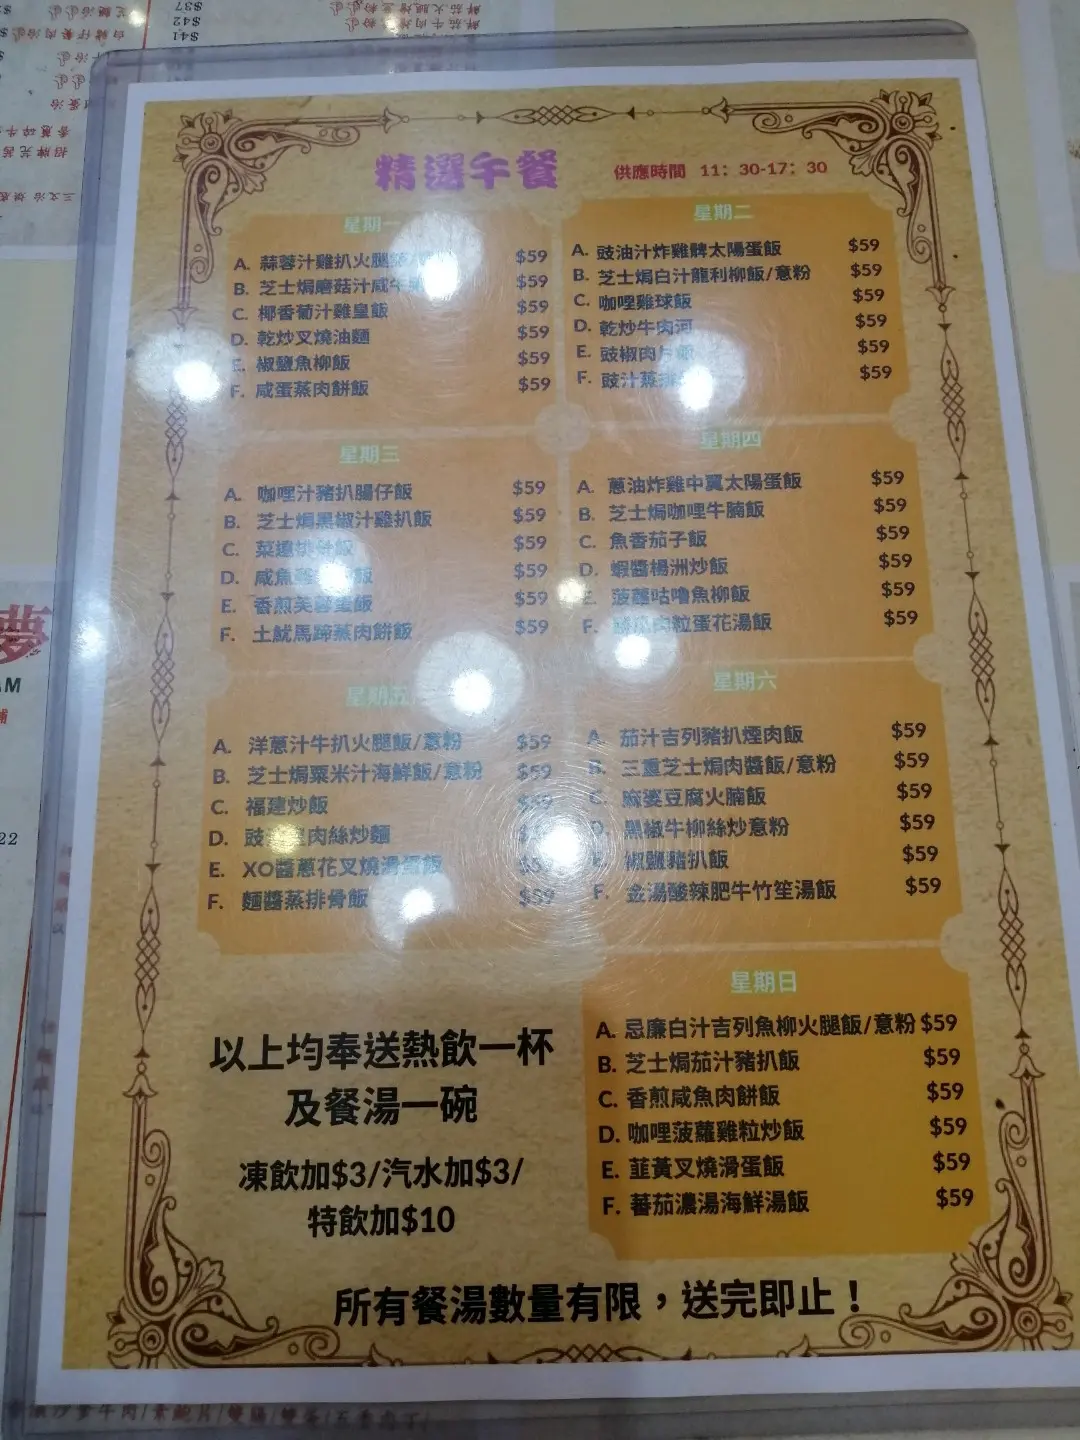 精選午餐
供應時間 11：30-17：30
星期一
A. 蒜蓉汁雞扒火腿 $59
B. 芝士焗磨菇汁咸牛 $59
C. 椰香葡汁雞皇飯 $59
D. 乾炒叉燒油麵 $59
E. 椒鹽魚柳飯 $59
F. 咸蛋蒸肉餅飯 $59
星期二
A. 豉油汁炸雞髀太陽蛋飯 $59
B. 芝士焗白汁龍利柳飯/意粉 $59
C. 咖哩雞球飯 $59
D. 乾炒牛肉河 $59
E. 豉椒肉片飯 $59
F. 豉汁蒸排 $59
星期三
A. 咖哩汁豬扒腸仔飯 $59
B. 芝士焗黑椒汁雞扒飯 $59
C. 菜遠排骨飯 $59
D. 咸魚雞 飯 $59
E. 香煎芙蓉蛋飯 $59
F. 土魷馬蹄蒸肉餅飯 $59
星期四
A. 蔥油炸雞中翼太陽蛋飯 $59
B. 芝士焗咖哩牛腩飯 $59
C. 魚香茄子飯 $59
D. 蝦醬楊洲炒飯 $59
E. 菠蘿咕嚕魚柳飯 $59
F. 肉粒蛋花湯飯 $59
星期五
A. 洋蔥汁牛扒火腿飯/意粉 $59
B. 芝士焗粟米汁海鮮飯/意粉 $59
C. 福建炒飯 $59
D. 豉 肉絲炒麵
E. XO醬蔥花叉燒滑蛋飯 $59
F. 麵醬蒸排骨飯 $59
星期六
A. 茄汁吉列豬扒煙肉飯 $59
B. 三重芝士焗肉醬飯/意粉 $59
C. 麻婆豆腐火腩飯 $59
D. 黑椒牛柳絲炒意粉 $59
E. 椒鹽豬扒飯 $59
F. 金湯酸辣肥牛竹笙湯飯 $59
星期日
A. 忌廉白汁吉列魚柳火腿飯/意粉 $59
B. 芝士焗茄汁豬扒飯 $59
C. 香煎咸魚肉餅飯 $59
D. 咖哩菠蘿雞粒炒飯 $59
E. 韮黃叉燒滑蛋飯 $59
F. 蕃茄濃湯海鮮湯飯 $59
以上均奉送熱飲一杯
及餐湯一碗
凍飲加$3/汽水加$3/
特飲加$10
所有餐湯數量有限，送完即止！